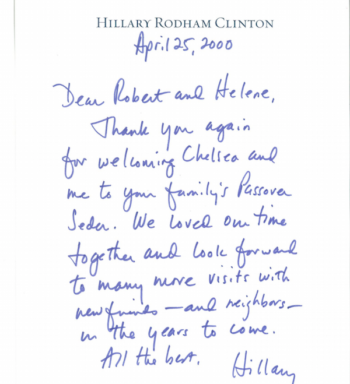 HILLARY RODHAM CLINTON
April 25, 2000
Dear Robert and Helene,
Thank you again
for welcoming Chelsea and
me to your family's Passover
Seder. We loved our time
together and look forward
to many more visits with
new friends — and neighbors —
in the years to come.
All the best,
Hillary